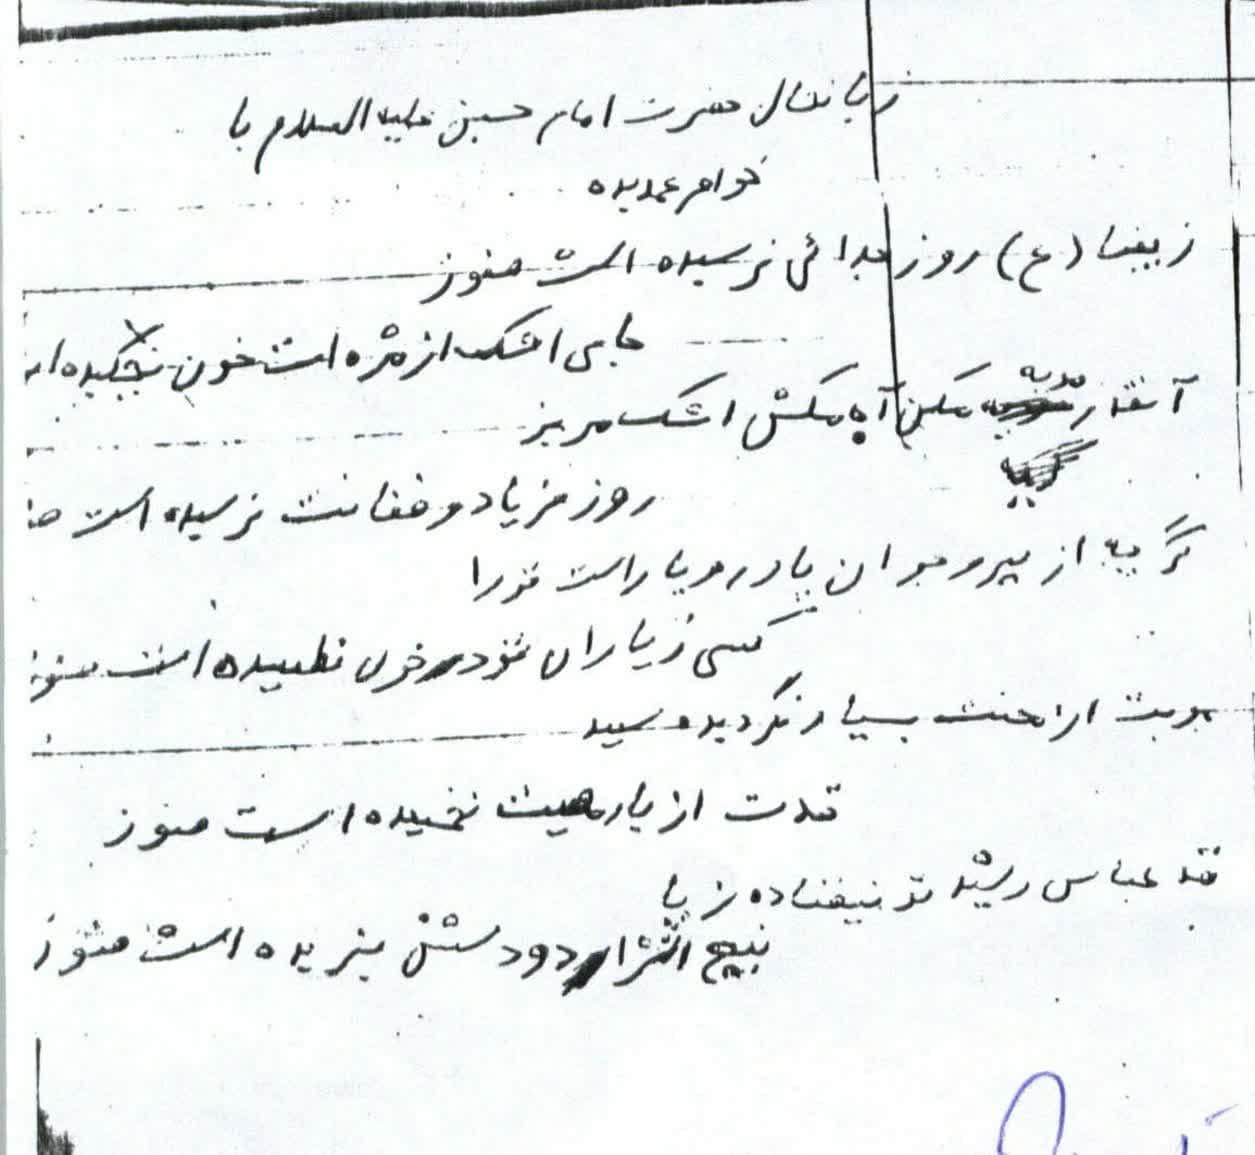 زبانحال حضرت امام حسین علیه السلام با
خواهر غمدیده
زینبا (ع) روز جدائی نرسیده است هنوز
جای اشک از مژه ات خون نچکیده
آنقدر مویه مکن آه مکش اشک مریز
روز فریاد و فغانت نرسیده است
گریه از پیر و جوان یاور و یار است تو را
کسی ز یاران تو در خون نطپیده است هنوز
مویت از محنت بسیار نگردیده سپید
قدت از بار مصیبت نخمیده است هنوز
قد عباس رشید تو نیفتاده ز پا
تیغ اشرار دو دستش نبریده است هنوز